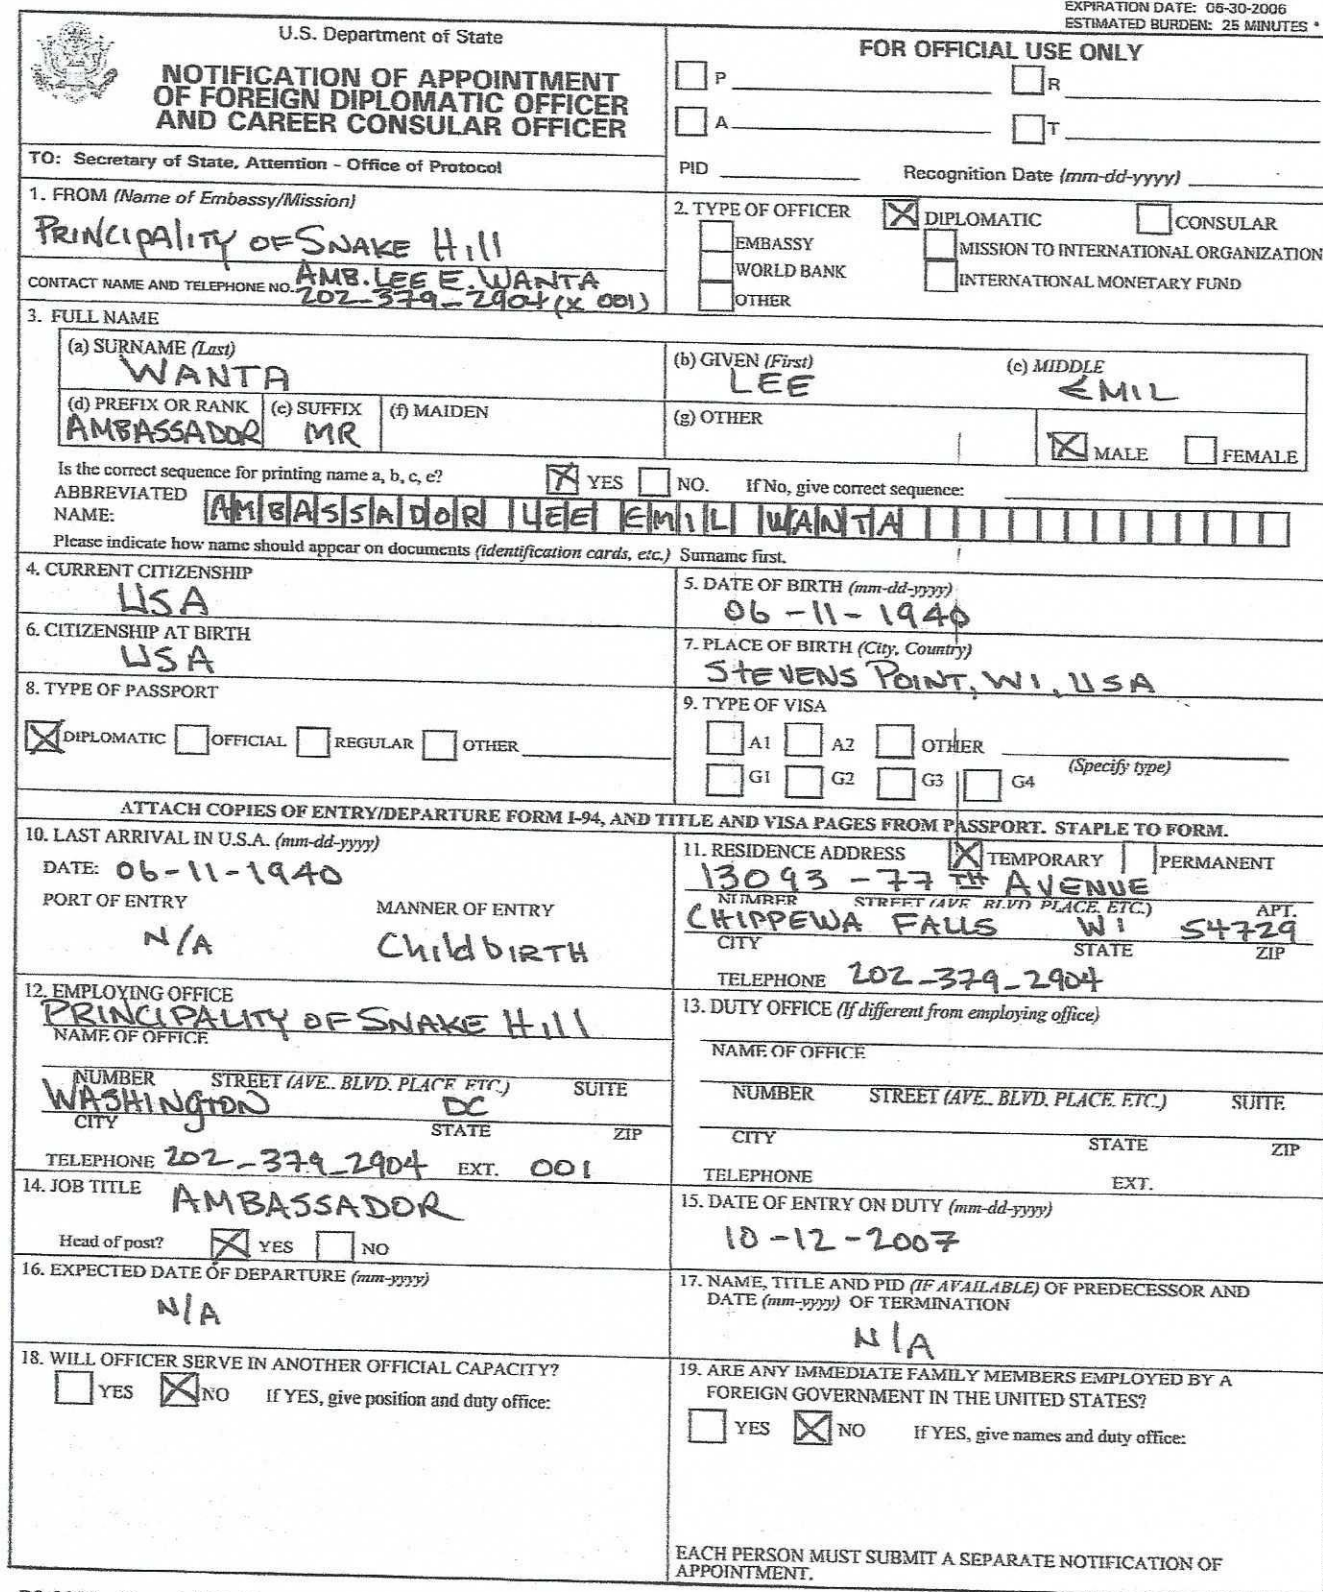 EXPIRATION DATE: 05-30-2006
ESTIMATED BURDEN: 25 MINUTES *
U.S. Department of State
NOTIFICATION OF APPOINTMENT
OF FOREIGN DIPLOMATIC OFFICER
AND CAREER CONSULAR OFFICER
TO: Secretary of State, Attention - Office of Protocol
FOR OFFICIAL USE ONLY
P R
A T
PID Recognition Date (mm-dd-yyyy)
1. FROM (Name of Embassy/Mission)
PRINCIPALITY OF SNAKE HILL
CONTACT NAME AND TELEPHONE NO. AMB. LEE E. WANTA
202-379-2904 (X 001)
2. TYPE OF OFFICER DIPLOMATIC CONSULAR
EMBASSY MISSION TO INTERNATIONAL ORGANIZATION
WORLD BANK INTERNATIONAL MONETARY FUND
OTHER
3. FULL NAME
(a) SURNAME (Last) (b) GIVEN (First) (c) MIDDLE
WANTA LEE EMIL
(d) PREFIX OR RANK (e) SUFFIX (f) MAIDEN (g) OTHER
AMBASSADOR MR
MALE FEMALE
Is the correct sequence for printing name a, b, c, e? YES NO. If No, give correct sequence:
ABBREVIATED
NAME: AMBASSADOR LEE EMIL WANTA
Please indicate how name should appear on documents (identification cards, etc.) Surname first.
4. CURRENT CITIZENSHIP
USA
5. DATE OF BIRTH (mm-dd-yyyy)
06-11-1940
6. CITIZENSHIP AT BIRTH
USA
7. PLACE OF BIRTH (City, Country)
STEVENS POINT, WI, USA
8. TYPE OF PASSPORT
DIPLOMATIC OFFICIAL REGULAR OTHER
9. TYPE OF VISA
A1 A2 OTHER
(Specify type)
G1 G2 G3 G4
ATTACH COPIES OF ENTRY/DEPARTURE FORM I-94, AND TITLE AND VISA PAGES FROM PASSPORT. STAPLE TO FORM.
10. LAST ARRIVAL IN U.S.A. (mm-dd-yyyy)
DATE: 06-11-1940
PORT OF ENTRY MANNER OF ENTRY
N/A Childbirth
11. RESIDENCE ADDRESS TEMPORARY PERMANENT
13093 - 77TH AVENUE
NUMBER STREET (AVE. BLVD. PLACE. ETC.) APT.
CHIPPEWA FALLS WI 54729
CITY STATE ZIP
TELEPHONE 202-379-2904
12. EMPLOYING OFFICE
PRINCIPALITY OF SNAKE HILL
NAME OF OFFICE
NUMBER STREET (AVE.. BLVD. PLACE. ETC.) SUITE
WASHINGTON DC
CITY STATE ZIP
TELEPHONE 202-379-2904 EXT. 001
13. DUTY OFFICE (If different from employing office)
NAME OF OFFICE
NUMBER STREET (AVE.. BLVD. PLACE. ETC.) SUITE
CITY STATE ZIP
TELEPHONE EXT.
14. JOB TITLE AMBASSADOR
Head of post? YES NO
15. DATE OF ENTRY ON DUTY (mm-dd-yyyy)
10-12-2007
16. EXPECTED DATE OF DEPARTURE (mm-yyyy)
N/A
17. NAME, TITLE AND PID (IF AVAILABLE) OF PREDECESSOR AND
DATE (mm-yyyy) OF TERMINATION
N/A
18. WILL OFFICER SERVE IN ANOTHER OFFICIAL CAPACITY?
YES NO If YES, give position and duty office:
19. ARE ANY IMMEDIATE FAMILY MEMBERS EMPLOYED BY A
FOREIGN GOVERNMENT IN THE UNITED STATES?
YES NO If YES, give names and duty office:
EACH PERSON MUST SUBMIT A SEPARATE NOTIFICATION OF
APPOINTMENT.